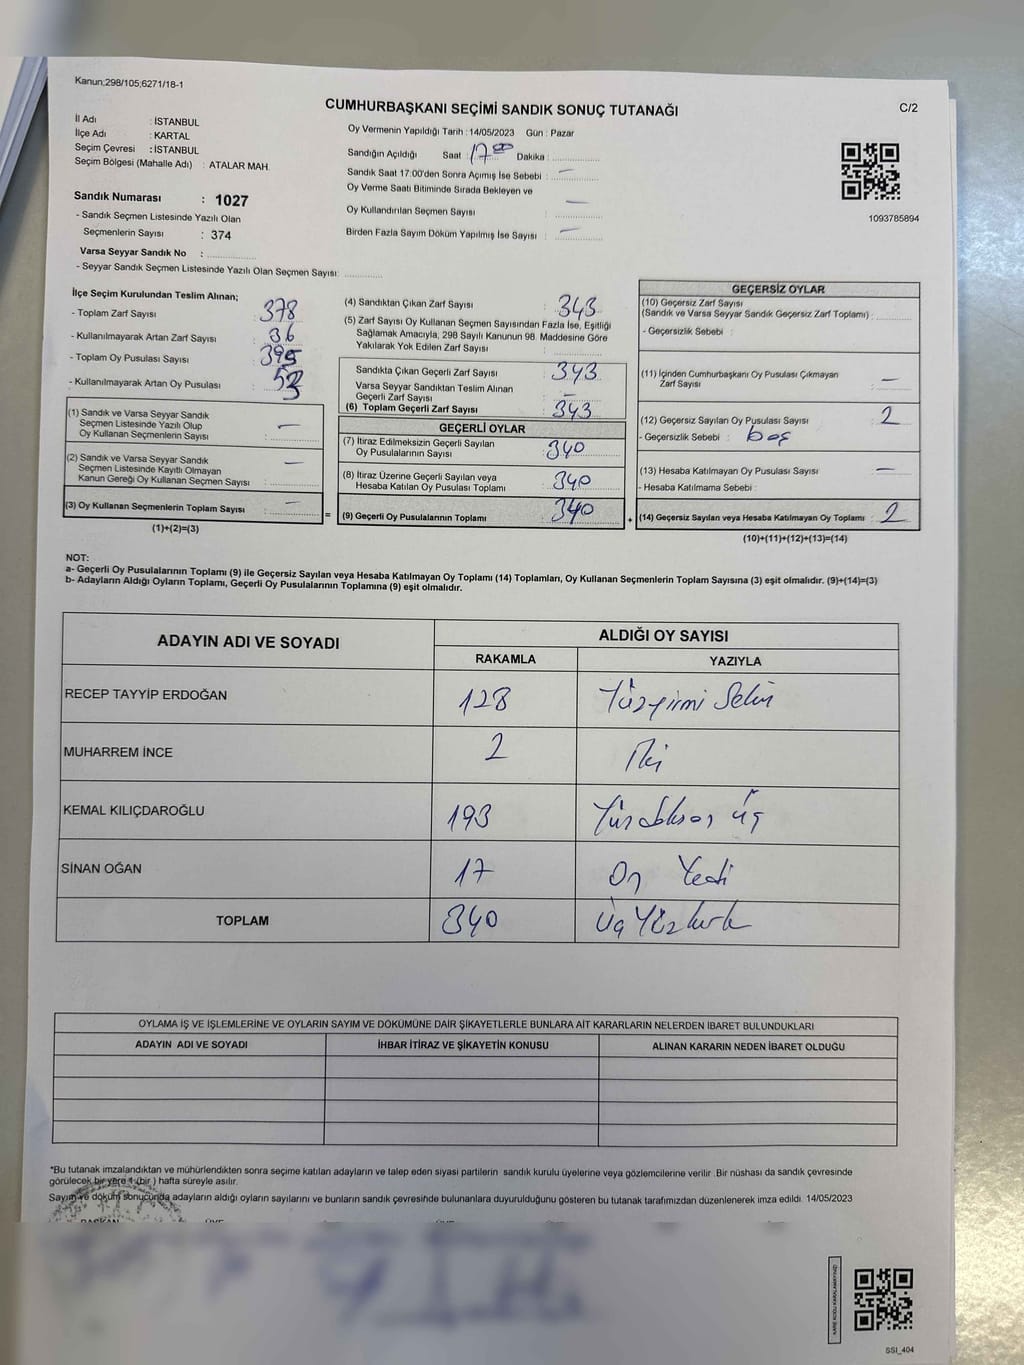 Kanun;298/105;6271/18-1
CUMHURBAŞKANI SEÇİMİ SANDIK SONUÇ TUTANAĞI
C/2
İl Adı : İSTANBUL
İlçe Adı : KARTAL
Seçim Çevresi : İSTANBUL
Seçim Bölgesi (Mahalle Adı) : ATALAR MAH.
Oy Vermenin Yapıldığı Tarih : 14/05/2023 Gün : Pazar
Sandığın Açıldığı Saat : 17 00 Dakika :
Sandık Saat 17:00'den Sonra Açımış İse Sebebi : —
Oy Verme Saati Bitiminde Sırada Bekleyen ve
Oy Kullandırılan Seçmen Sayısı : —
Birden Fazla Sayım Döküm Yapılmış İse Sayısı : —
1093785894
Sandık Numarası : 1027
- Sandık Seçmen Listesinde Yazılı Olan
Seçmenlerin Sayısı : 374
Varsa Seyyar Sandık No :
- Seyyar Sandık Seçmen Listesinde Yazılı Olan Seçmen Sayısı:
İlçe Seçim Kurulundan Teslim Alınan;
- Toplam Zarf Sayısı : 378
- Kullanılmayarak Artan Zarf Sayısı : 36
- Toplam Oy Pusulası Sayısı : 395
- Kullanılmayarak Artan Oy Pusulası : 53
(1) Sandık ve Varsa Seyyar Sandık
Seçmen Listesinde Yazılı Olup
Oy Kullanan Seçmenlerin Sayısı : —
(2) Sandık ve Varsa Seyyar Sandık
Seçmen Listesinde Kayıtlı Olmayan
Kanun Gereği Oy Kullanan Seçmen Sayısı : —
(3) Oy Kullanan Seçmenlerin Toplam Sayısı : —
(1)+(2)=(3)
(4) Sandıktan Çıkan Zarf Sayısı : 343
(5) Zarf Sayısı Oy Kullanan Seçmen Sayısından Fazla İse, Eşitliği
Sağlamak Amacıyla, 298 Sayılı Kanunun 98. Maddesine Göre
Yakılarak Yok Edilen Zarf Sayısı :
Sandıkta Çıkan Geçerli Zarf Sayısı : 343
Varsa Seyyar Sandıktan Teslim Alınan
Geçerli Zarf Sayısı : —
(6) Toplam Geçerli Zarf Sayısı : 343
GEÇERLİ OYLAR
(7) İtiraz Edilmeksizin Geçerli Sayılan
Oy Pusulalarının Sayısı : 340
(8) İtiraz Üzerine Geçerli Sayılan veya
Hesaba Katılan Oy Pusulası Toplamı : 340
= (9) Geçerli Oy Pusulalarının Toplamı : 340
GEÇERSİZ OYLAR
(10) Geçersiz Zarf Sayısı
(Sandık ve Varsa Seyyar Sandık Geçersiz Zarf Toplamı) :
- Geçersizlik Sebebi :
(11) İçinden Cumhurbaşkanı Oy Pusulası Çıkmayan
Zarf Sayısı : —
(12) Geçersiz Sayılan Oy Pusulası Sayısı : 2
- Geçersizlik Sebebi : boş
(13) Hesaba Katılmayan Oy Pusulası Sayısı : —
- Hesaba Katılmama Sebebi :
+ (14) Geçersiz Sayılan veya Hesaba Katılmayan Oy Toplamı : 2
(10)+(11)+(12)+(13)=(14)
NOT:
a- Geçerli Oy Pusulalarının Toplamı (9) ile Geçersiz Sayılan veya Hesaba Katılmayan Oy Toplamı (14) Toplamları, Oy Kullanan Seçmenlerin Toplam Sayısına (3) eşit olmalıdır. (9)+(14)=(3)
b- Adayların Aldığı Oyların Toplamı, Geçerli Oy Pusulalarının Toplamına (9) eşit olmalıdır.
ADAYIN ADI VE SOYADI ALDIĞI OY SAYISI
RAKAMLA YAZIYLA
RECEP TAYYİP ERDOĞAN 128 Yüzyirmi Sekiz
MUHARREM İNCE 2 İki
KEMAL KILIÇDAROĞLU 193 Yüzdoksan üç
SİNAN OĞAN 17 On Yedi
TOPLAM 340 Üç Yüzkırk
OYLAMA İŞ VE İŞLEMLERİNE VE OYLARIN SAYIM VE DÖKÜMÜNE DAİR ŞİKAYETLERLE BUNLARA AİT KARARLARIN NELERDEN İBARET BULUNDUKLARI
ADAYIN ADI VE SOYADI İHBAR İTİRAZ VE ŞİKAYETİN KONUSU ALINAN KARARIN NEDEN İBARET OLDUĞU
*Bu tutanak imzalandıktan ve mühürlendikten sonra seçime katılan adayların ve talep eden siyasi partilerin sandık kurulu üyelerine veya gözlemcilerine verilir. Bir nüshası da sandık çevresinde
görülecek bir yere 1 (bir ) hafta süreyle asılır.
Sayım ve döküm sonucunda adayların aldığı oyların sayılarını ve bunların sandık çevresinde bulunanlara duyurulduğunu gösteren bu tutanak tarafımızdan düzenlenerek imza edildi. 14/05/2023
BAŞKAN
SSI_404